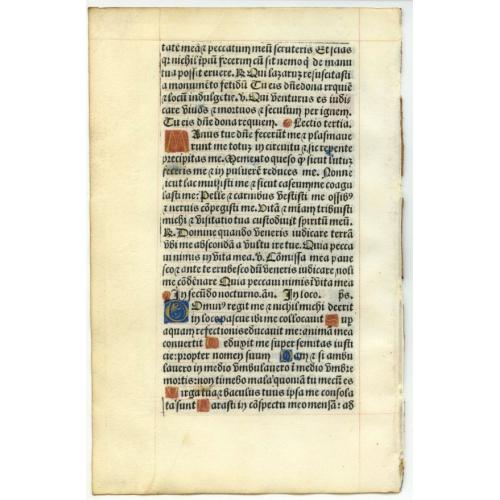 tatē meā ⁊ peccatum meū scruteris Et scias
qꝛ nichil īpiū fecerim cū sit nemo q̄ de manu
tua possit eruere. ℟. Qui lazarū resuscitasti
a monumēto fetidū Tu eis dn̄e dona requiē
⁊ locū indulgētie. v. Qui venturus es iudi
care viuos ⁊ mortuos ⁊ seculum per ignem.
Tu eis dn̄e dona requiem. Lectio tertia.
Manus tue dn̄e fecerūt me ⁊ plasmaue
runt me totuȝ in circuitu ⁊ sic repente
precipitas me. Memento queso q̄ sicut lutuȝ
feceris me ⁊ in puluerē reduces me. Nonne
sicut lac mulsisti me ⁊ sicut caseum me coagu
lasti me: Pelle ⁊ carnibus vestisti me ossibꝰ
⁊ neruis cōpegisti me. Vitā ⁊ mīam tribuisti
michi ⁊ visitatio tua custodiuit spiritū meū.
℟. Domine quando veneris iudicare terrā
vbi me abscondā a vultu ire tue. Quia pecca
ui nimis in vita mea. v. Cōmissa mea paue
sco ⁊ ante te erubesco dū veneris iudicare noli
me cōdēnare Quia peccaui nimis ī vita mea
In secūdo nocturno. an. In loco. ps.
Dominꝰ regit me ⁊ nichil michi deerit
in loco pascue ibi me collocauit Sup
aquam refectionis educauit me: animā mea
conuertit Deduxit me super semitas iusti
cie: propter nomen suum Nam ⁊ si ambu
lauero in medio vmbulauero ī medio vmbre
mortis: non timebo mala quoniā tu mecū es
Virga tua ⁊ baculus tuus ipsa me consola
ta sunt Parasti in cōspectu meo mensā: ad